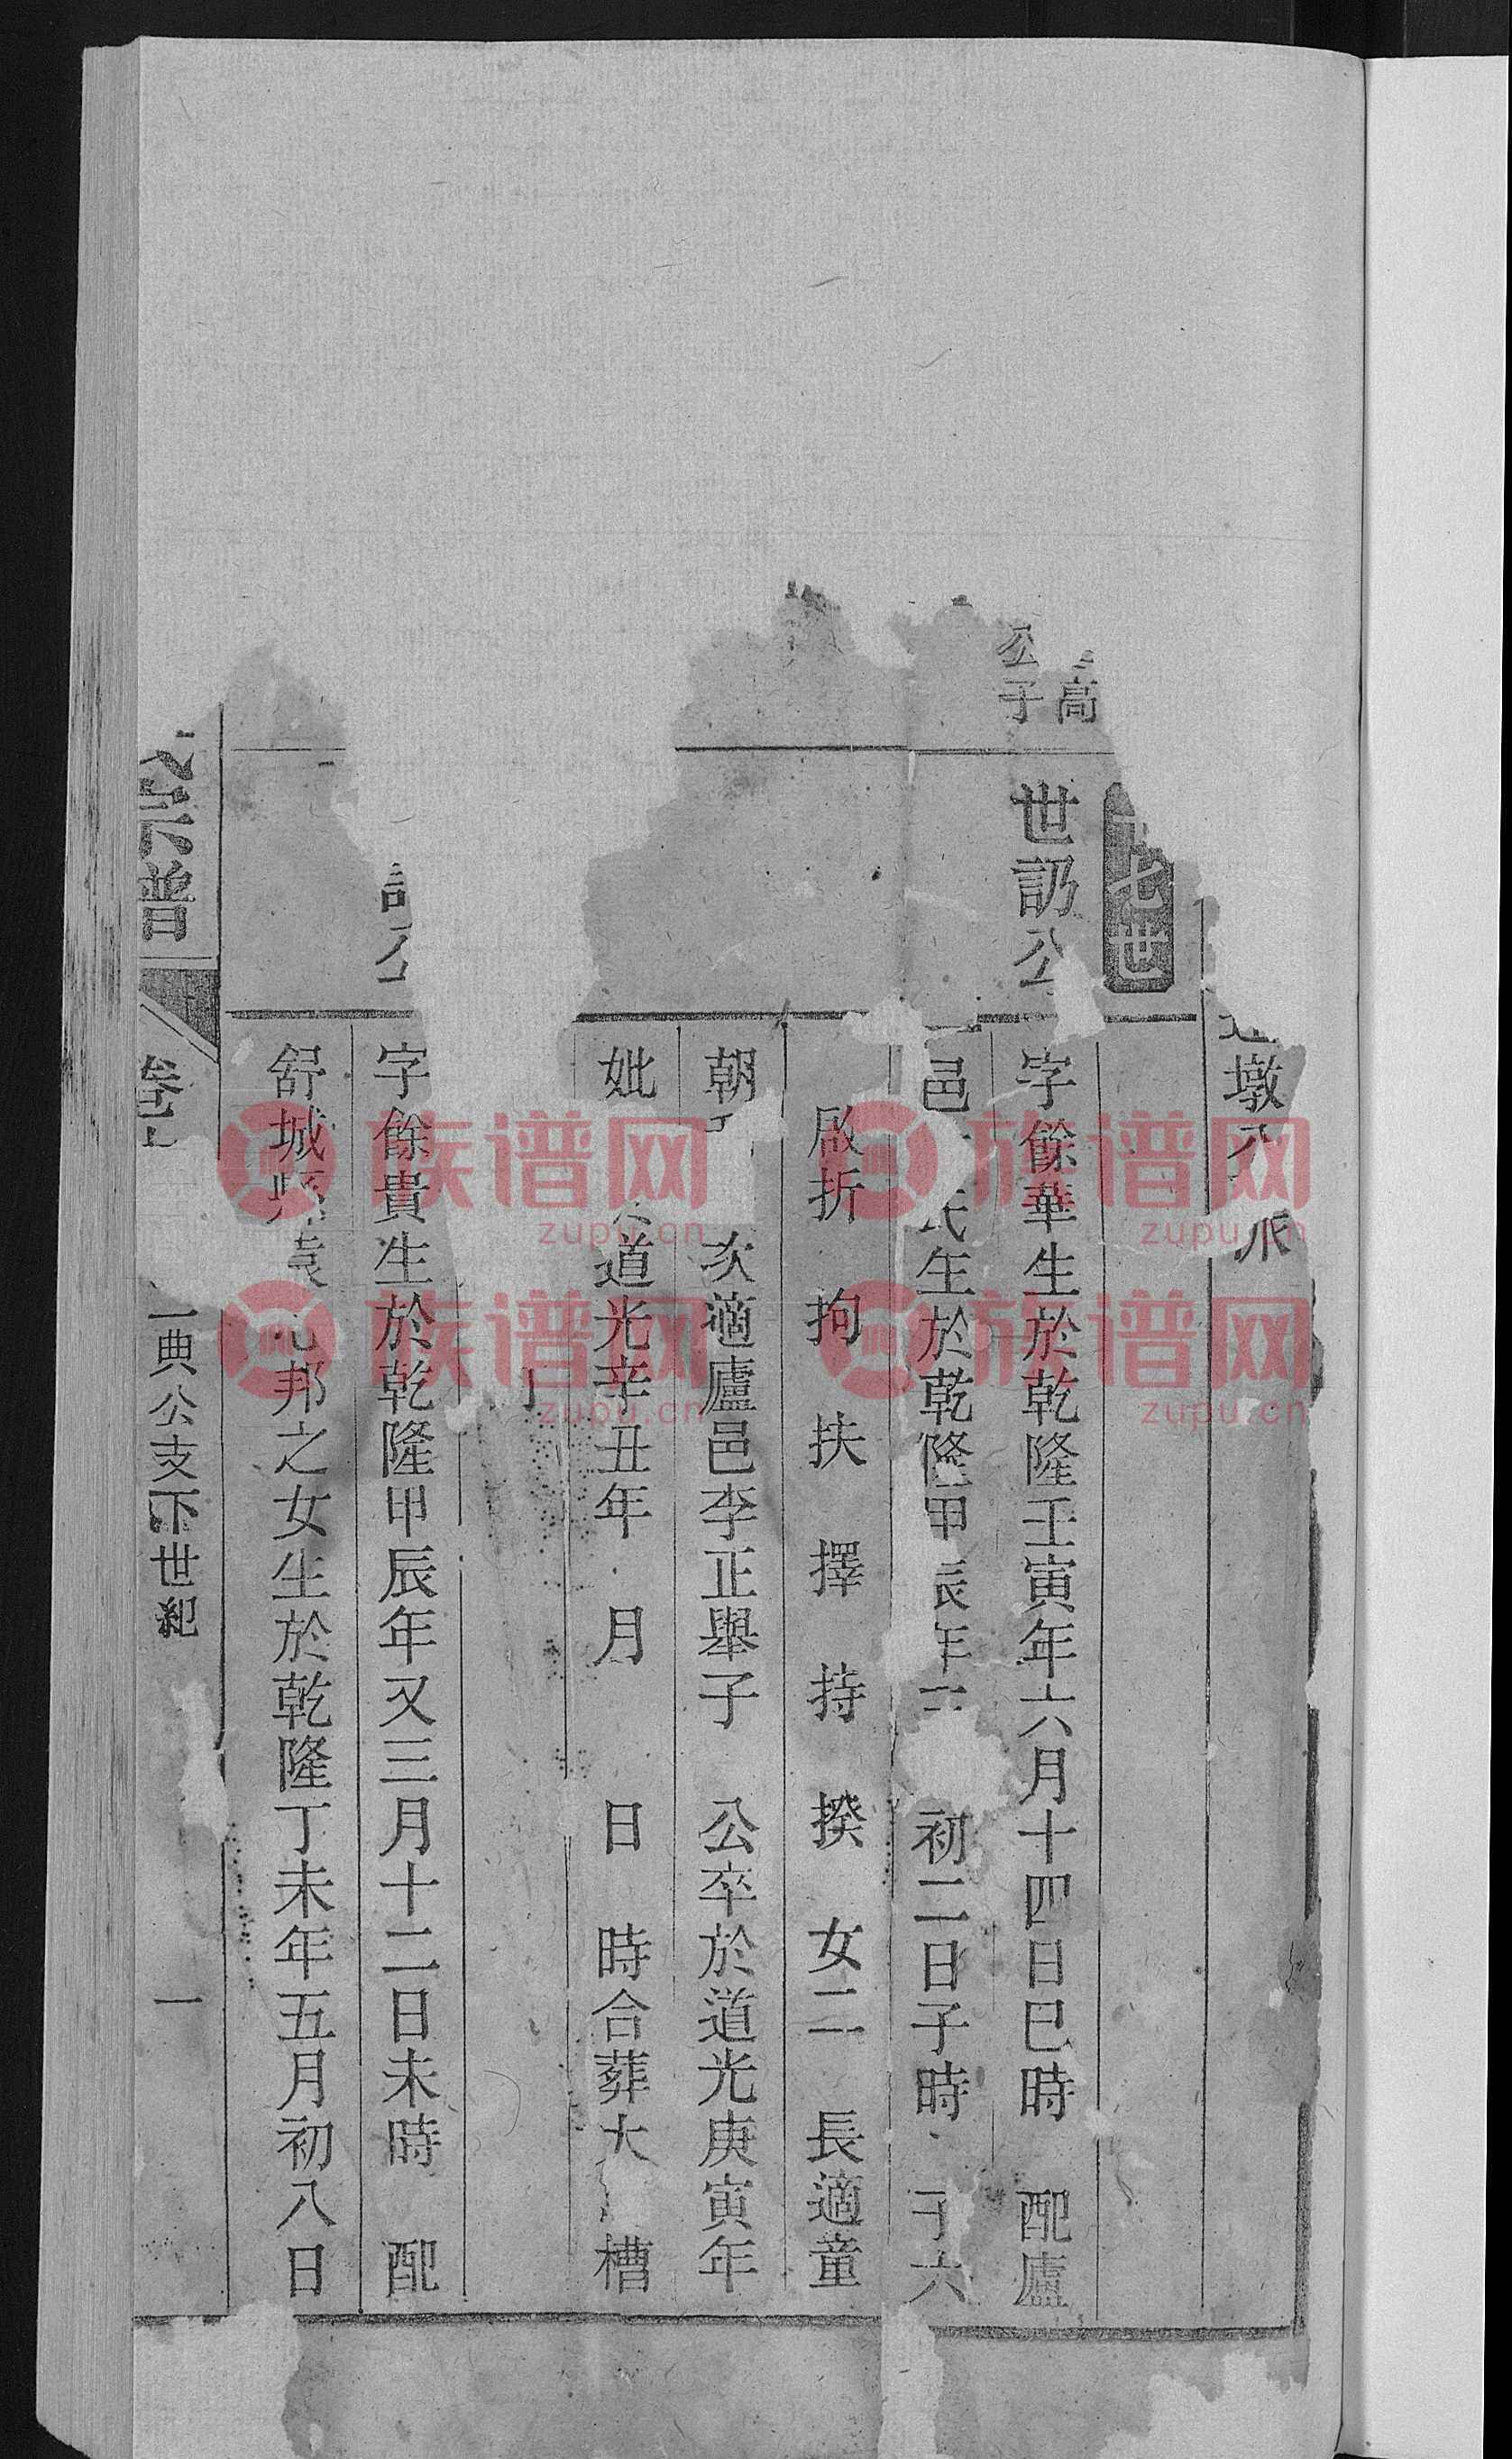 墩
派
七世
高
公子
世訒公
字餘華生於乾隆壬寅年六月十四日巳時 配廬
邑 氏生於乾隆甲辰年 初二日子時 子六
啟折 拘 扶 擇 持 揆 女二 長適童
朝 次適廬邑李正舉子 公卒於道光庚寅年
妣 道光辛丑年 月 日 時合葬大 槽
公
字餘貴生於乾隆甲辰年又三月十二日未時 配
舒城 袁 邦之女生於乾隆丁未年五月初八日
宗譜
卷
典公支下世紀
一
族谱网
zupu.cn
族谱网
zupu.cn
族谱网
zupu.cn
族谱网
zupu.cn